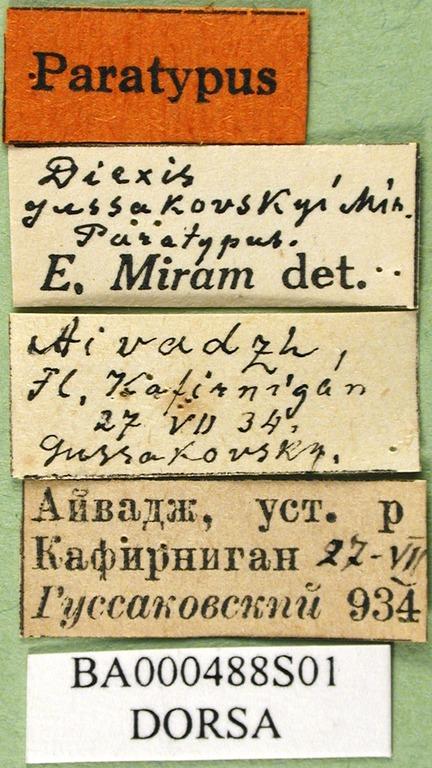 Paratypus
Diexis
gussakovskyi Mir.
Paratypus.
E. Miram det.
Aivadzh,
Fl. Kafirnigán
27 VII 34.
Gussakovsky.
Айвадж, уст. р
Кафирниган 27-VII
Гуссаковский 934
BA000488S01
DORSA